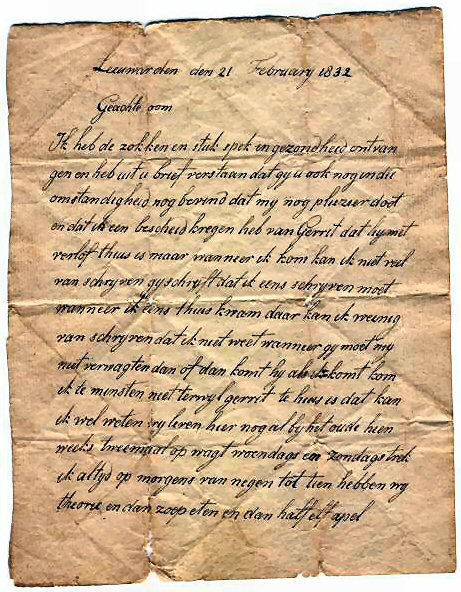 Leeuwarden den 21 February 1832
Geachte oom
Ik heb de zokken en stuk spek in gezondheid ontvan
gen en heb uit u brief verstaan dat gy u ook nog in die
omstandigheid nog bevind dat my nog pluzier doet
en dat ik een bescheid kregen heb van Gerrit dat hy met
verlof thuis is maar wanneer ik kom kan ik niet veel
van schryven gy schryft dat ik eens schryven moet
wanneer ik eens thuis kwam daar kan ik weinig
van schryven dat ik niet weet wanneer gy moet my
niet verwagten dan of dan komt hy als ik komt kom
ik te minsten niet terwyl gerrit te huis is dat kan
ik wel weten wy leren hier nog al by het oude heen
weeks tweemaal op wagt woendags en zondags trek
ik altyd op morgens van negen tot tien hebben wy
theorie en dan zoep eten en dan half elf apel